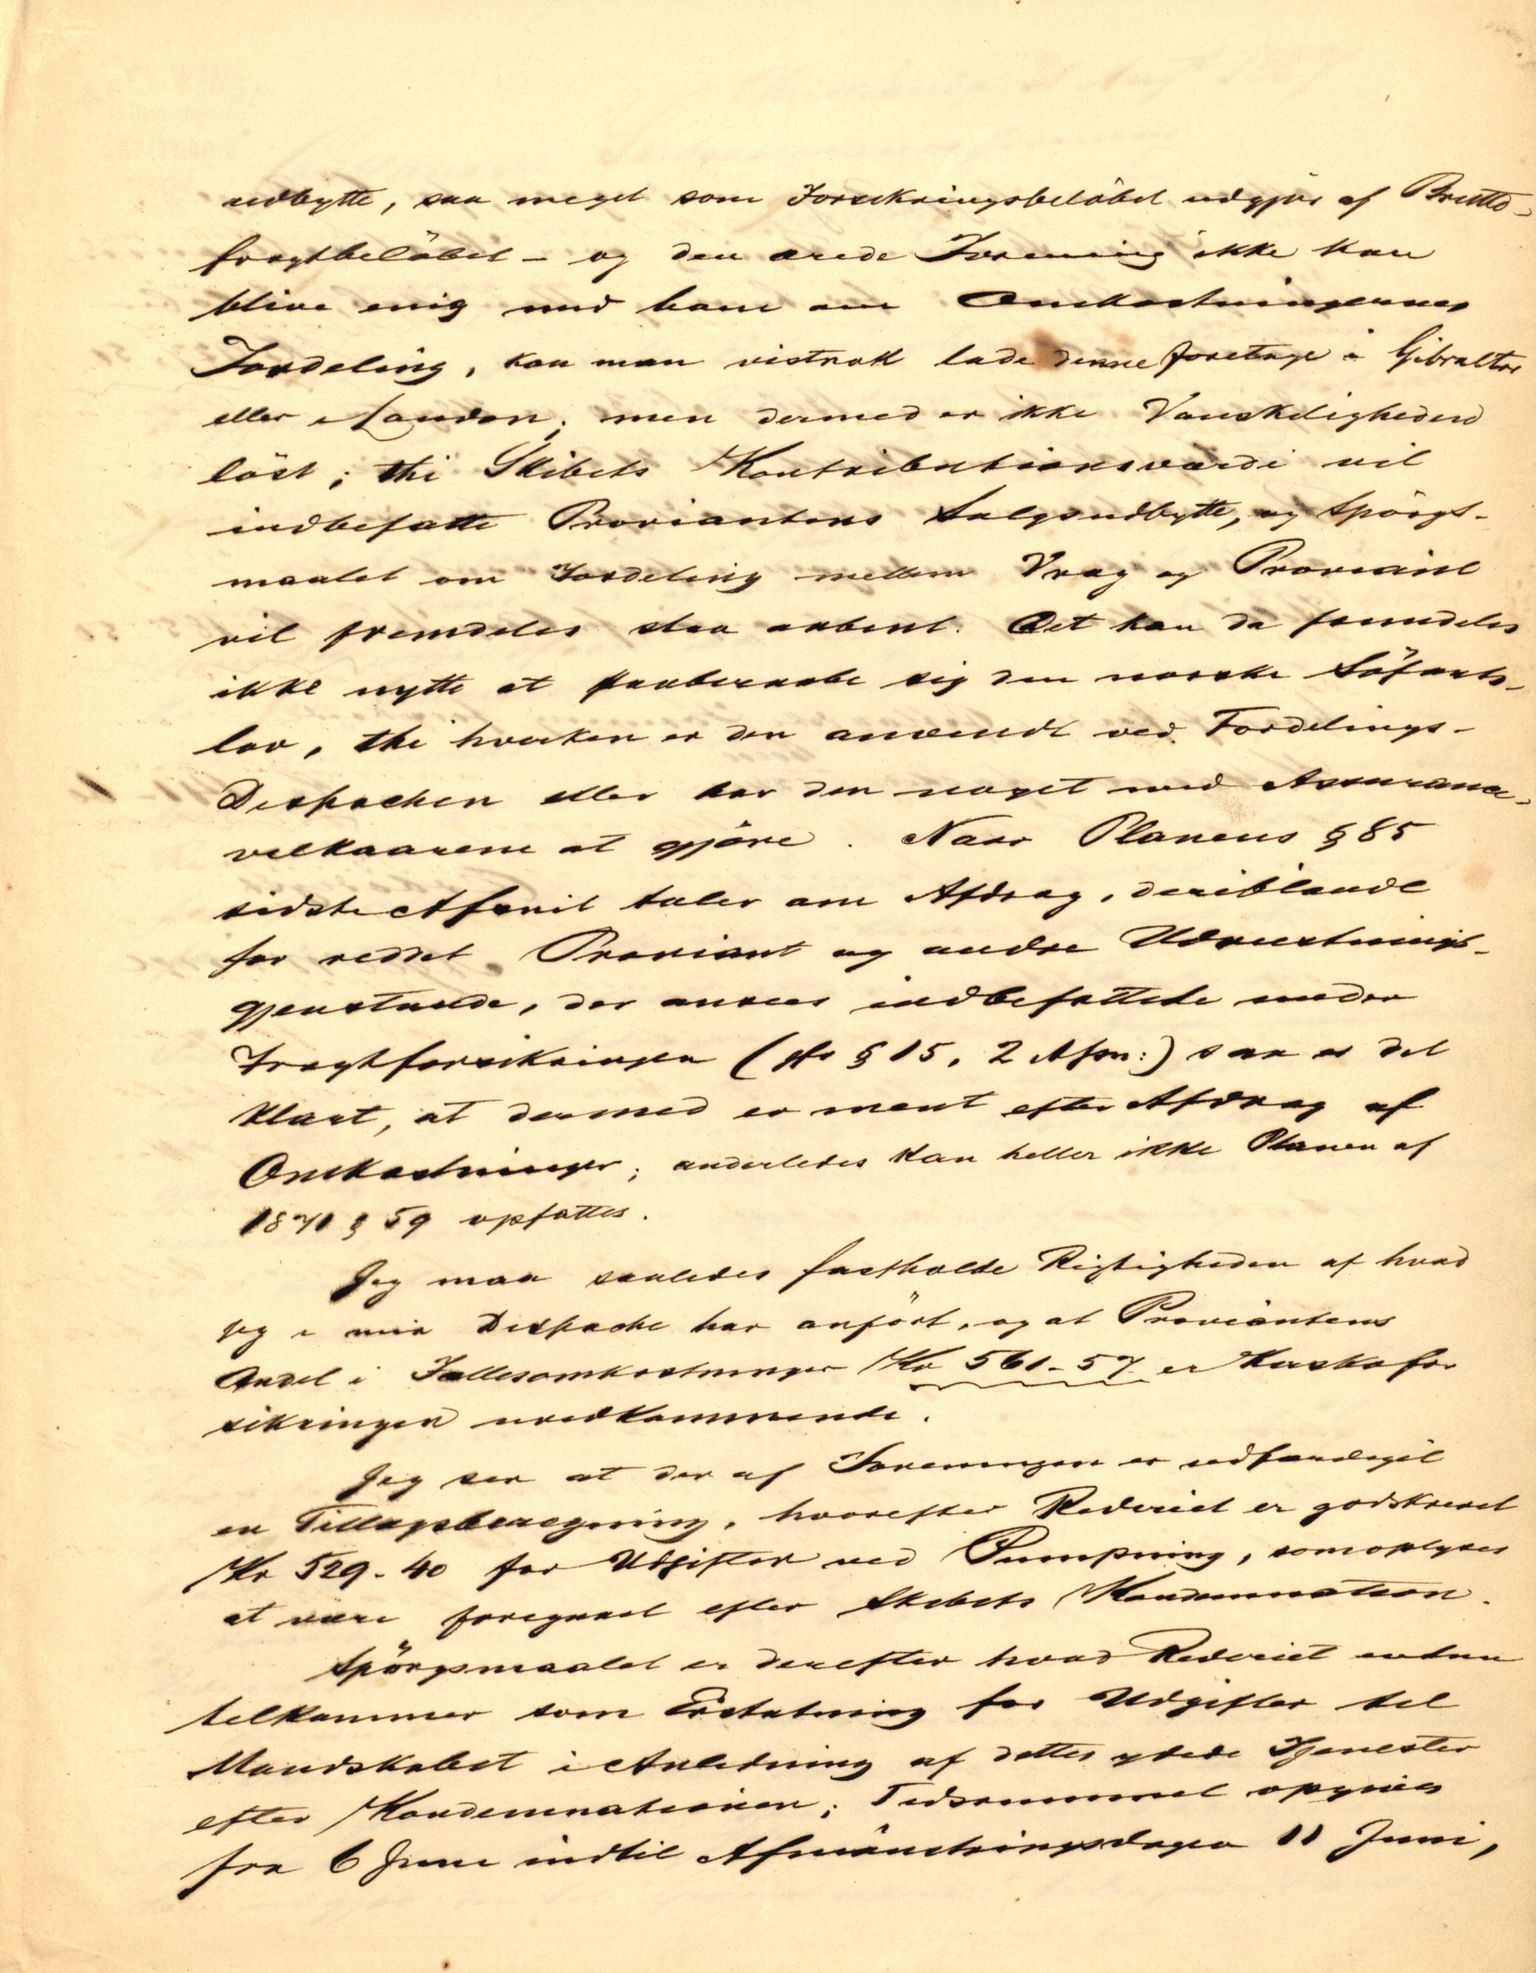 udbytte, saa meget som Forsikringsbeløbet udgjør af Brutto-
fragtbeløbet – og den ærede Forening ikke kan
blive enig med ham om Omkostningernes
Fordeling, kan man vistnok lade denne foretage i Gibraltar
eller London; men dermed er ikke Vanskeligheden
löst; thi Skibets Kontributionsværdi vil
indbefatte Proviantens Salgsudbytte, og Spörgs-
maalet om Fordeling mellem Vrag og Proviant
vil fremdeles staa aabent. Det kan da fremdeles
ikke nytte at paaberaabe sig den norske Söfarts-
lov, thi hverken er den anvendt ved Fordelings-
Despachen eller har den noget med Assurance-
vilkaarene at gjöre. Naar Planens § 85
sidste Afsnit taler om Afdrag, deriblandt
for reddet Proviant og andre Udrustnings-
gjenstande, der ansees indbefattede under
Fragtforsikringen (jfr § 15, 2 Afsn:) saa er det
klart, at dermed er ment efter Afdrag af
Omkostninger; anderledes kan heller ikke Planen af
1871 § 59 opfattes.
Jeg maa saaledes fastholde Rigtigheden af hvad
jeg i min Despache har anfört, og at Proviantens
Andel i Fællesomkostninger Kr 561-57 er Kaskofor
sikringen uvedkommende.
Jeg ser at der af Foreningen er udfærdiget
en Tillægsberegning, hvorefter Rederiet er godskrevet
Kr 529-40 for Udgifter ved Pumpning, som oplyses
at være foregaaet efter Skibets Kondemnation.
Spörgsmaalet er derefter hvad Rederiet endnu
tilkommer som Erstatning for Udgifter til
Mandskabet i Anledning af dettes ydede Tjenester
efter Kondemnationen; Tidsrummet opgives
fra 6 Juni indtil Afmönstringsdagen 11 Juni,